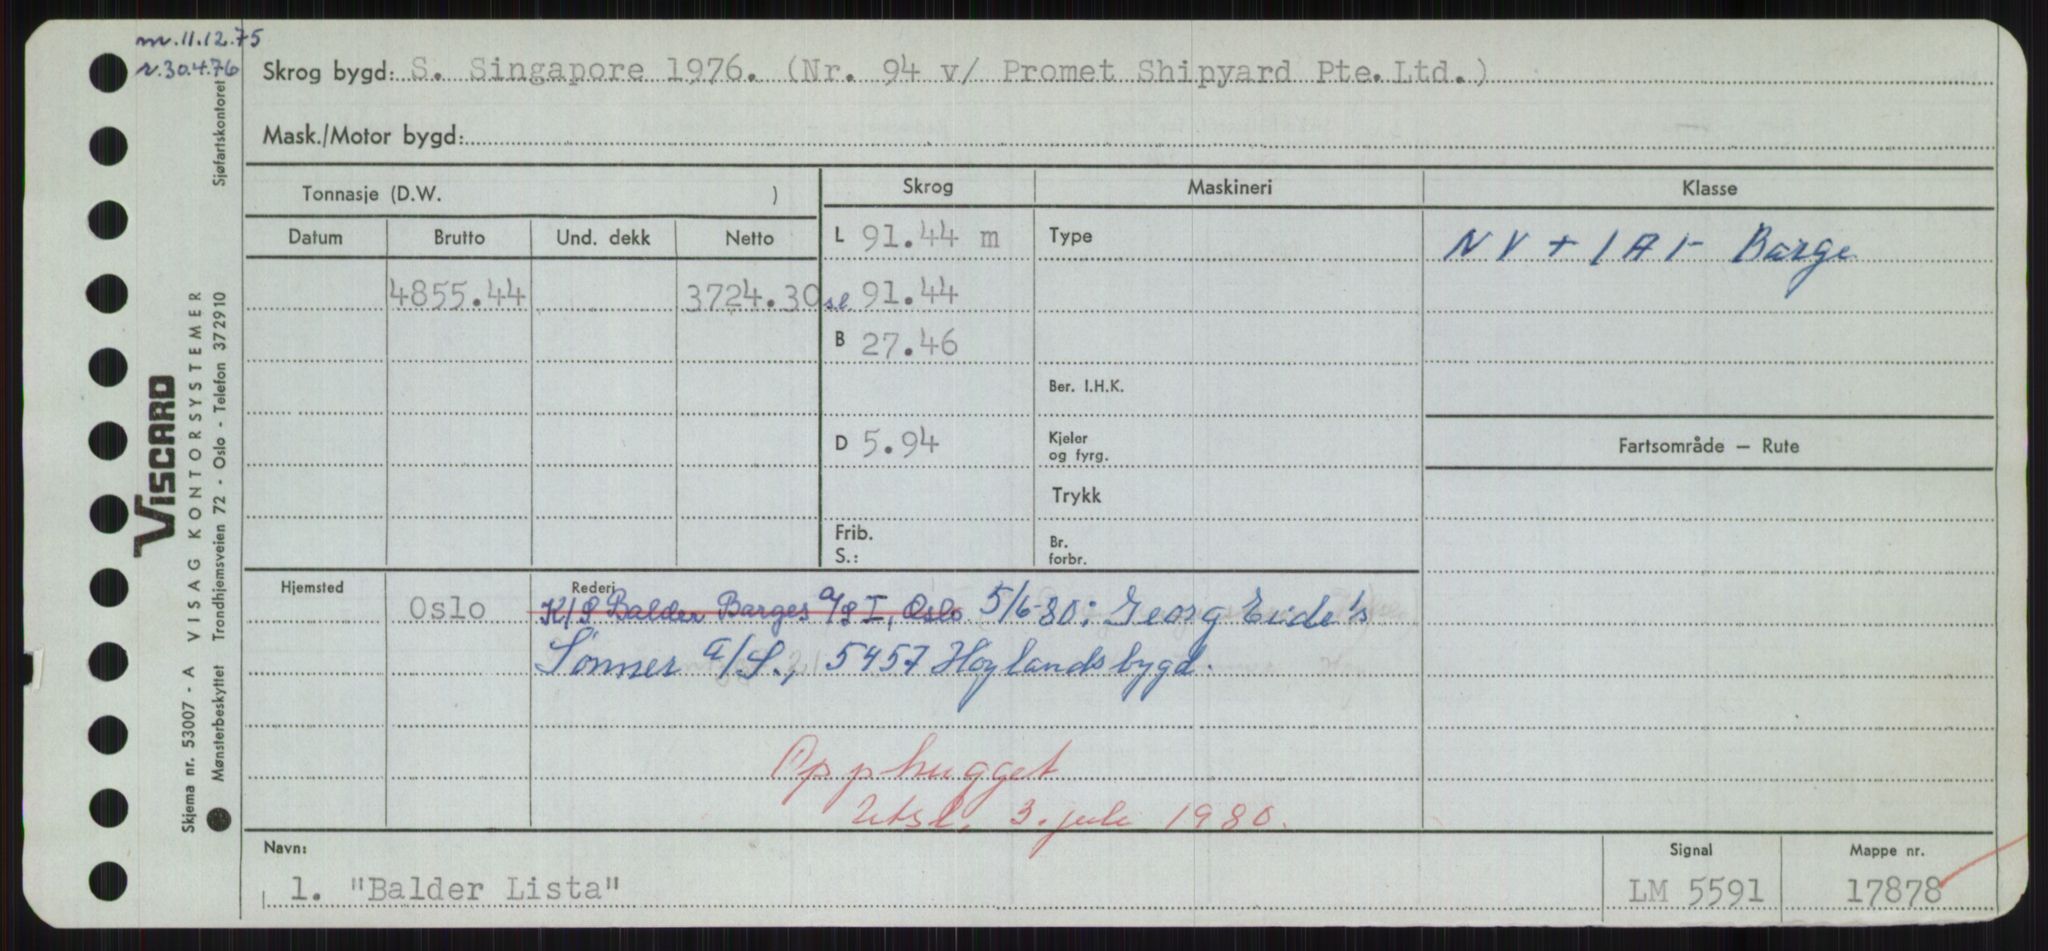 m.11.12.75
r.30.4.76
Skrog bygd: S. Singapore 1976. (Nr. 94 v/ Promet Shipyard Pte.Ltd.)
Mask./Motor bygd:
Tonnasje (D.W. )
Skrog
Maskineri
Klasse
Datum
Brutto
Und. dekk
Netto
L 91.44 m
Type
NV + 1A1- Barge
4855.44
3724.30
s.l. 91.44
B 27.46
Ber. I.H.K.
D 5.94
Kjeler
og fyrg.
Fartsområde — Rute
Trykk
Frib.
S.:
Br.
forbr.
Hjemsted
Oslo
Rederi
K/S Balder Barges A/S I, Oslo 5/6-80: Georg Eide's
Sønner a/S., 5457 Høylandsbygd.
Opphugget
Utsl. 3. juli 1980.
Navn:
1. "Balder Lista"
Signal
LM 5591
Mappe nr.
17878
Skjema nr. 53007 - A VISAG KONTORSYSTEMER
VISCARD
Mønsterbeskyttet Trondhjemsveien 72 - Oslo - Telefon 372910
Sjøfartskontoret